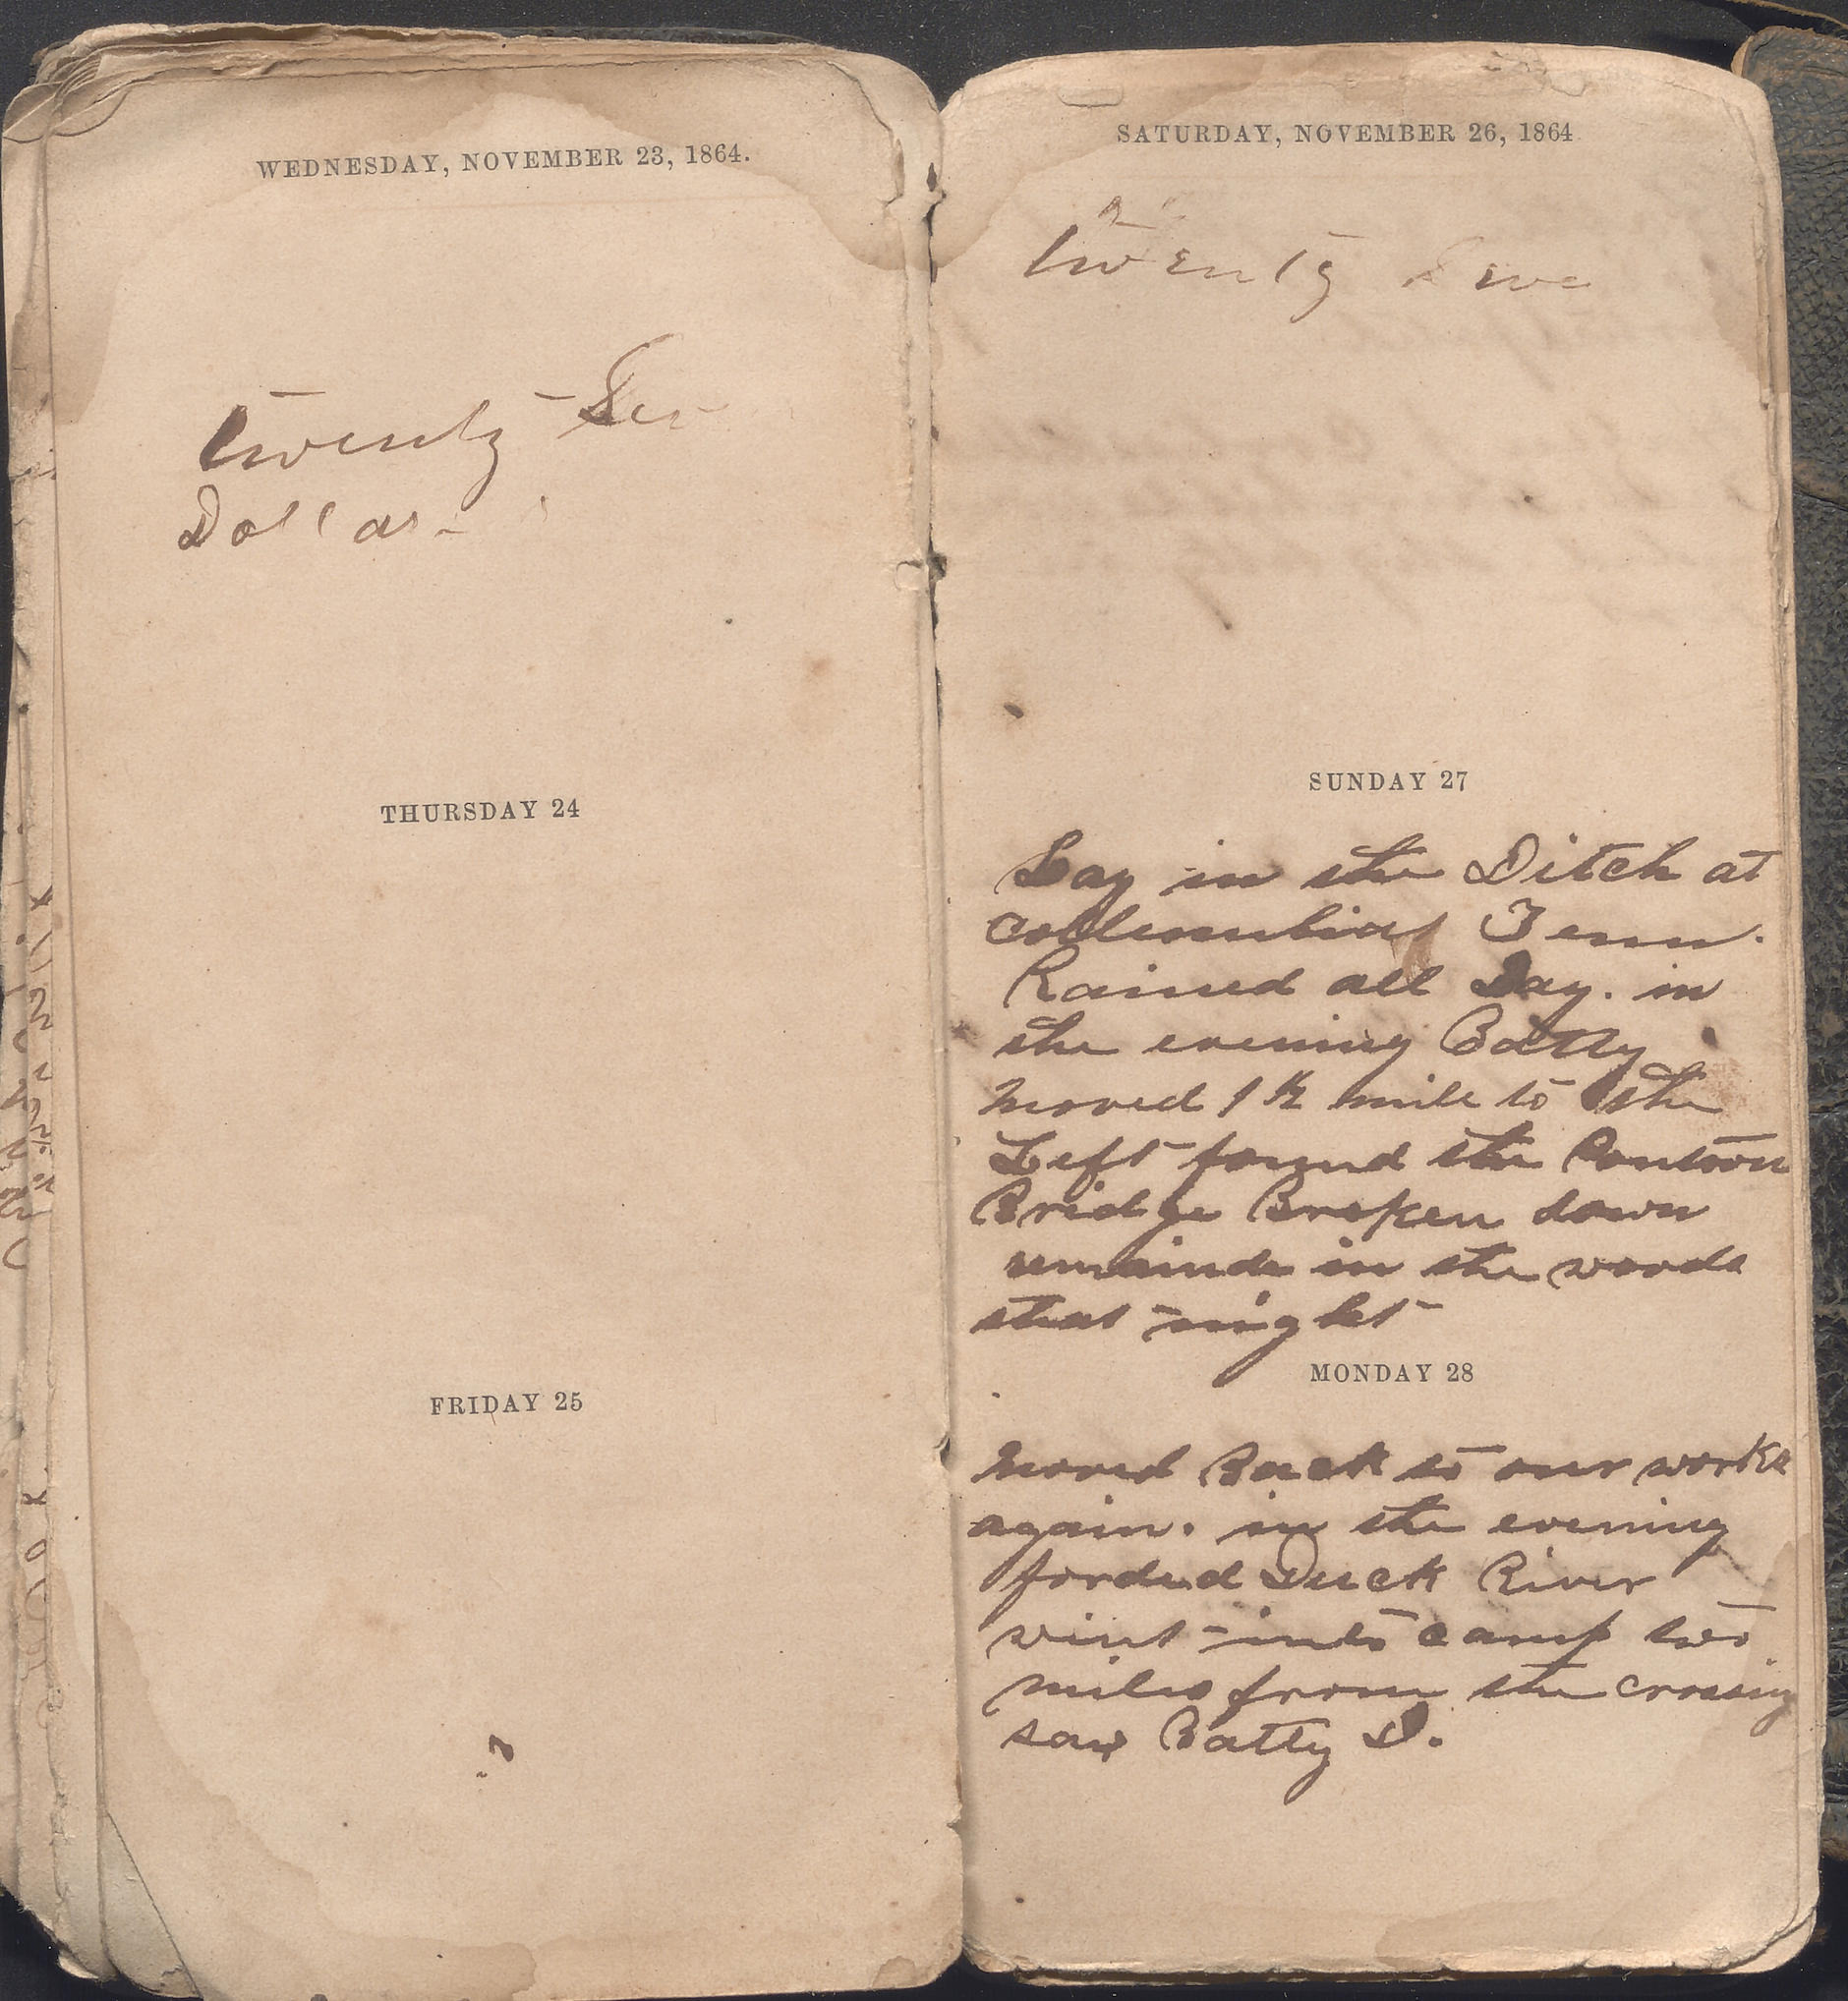 WEDNESDAY, NOVEMBER 23, 1864.
twenty
Dollar
THURSDAY 24
FRIDAY 25
SATURDAY, NOVEMBER 26, 1864
twenty
SUNDAY 27
Lay in the Ditch at
Collumbia Tenn.
Rained all Day. in
the evening Batty
moved 1 ½ mile to the
Left found the Pontoon
Bridge Broken down
remainde in the woods
that night
MONDAY 28
moved Back to our works
again. in the evening
forded Duck River
wint into camp two
miles from the crossing
saw Batty D.